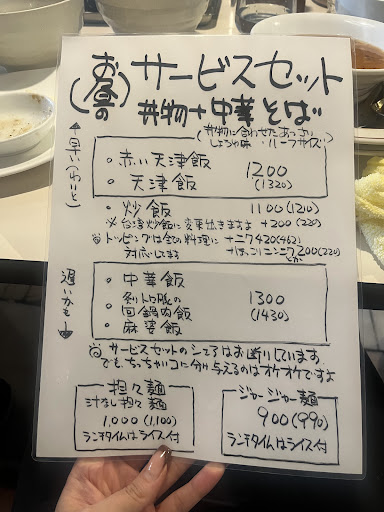 (お昼の) サービスセット
丼物+中華そば
(丼物に合わせたあっさり
しょうゆ味・ハーフサイズ)
↑早い(わりと)
・赤い天津飯 1200
・天津飯 (1320)
・炒飯 1100(1210)
※台湾炒飯に変更出きますよ +200(220)
◎トッピングは全ての料理に +ニク420(462)
対応してまる +ほっこりニンニク200(220)
遅いかも↓
・中華飯
・剣トロ豚の 1300
回鍋肉飯 (1430)
・麻婆飯
◎サービスセットのシェアはお断りしています
でも、ちっちゃいコに分け与えるのはオケオケですよ
担々麺
汁なし担々麺
1,000(1,100)
ランチタイムはライス付
ジャージャー麺
900(990)
ランチタイムはライス付